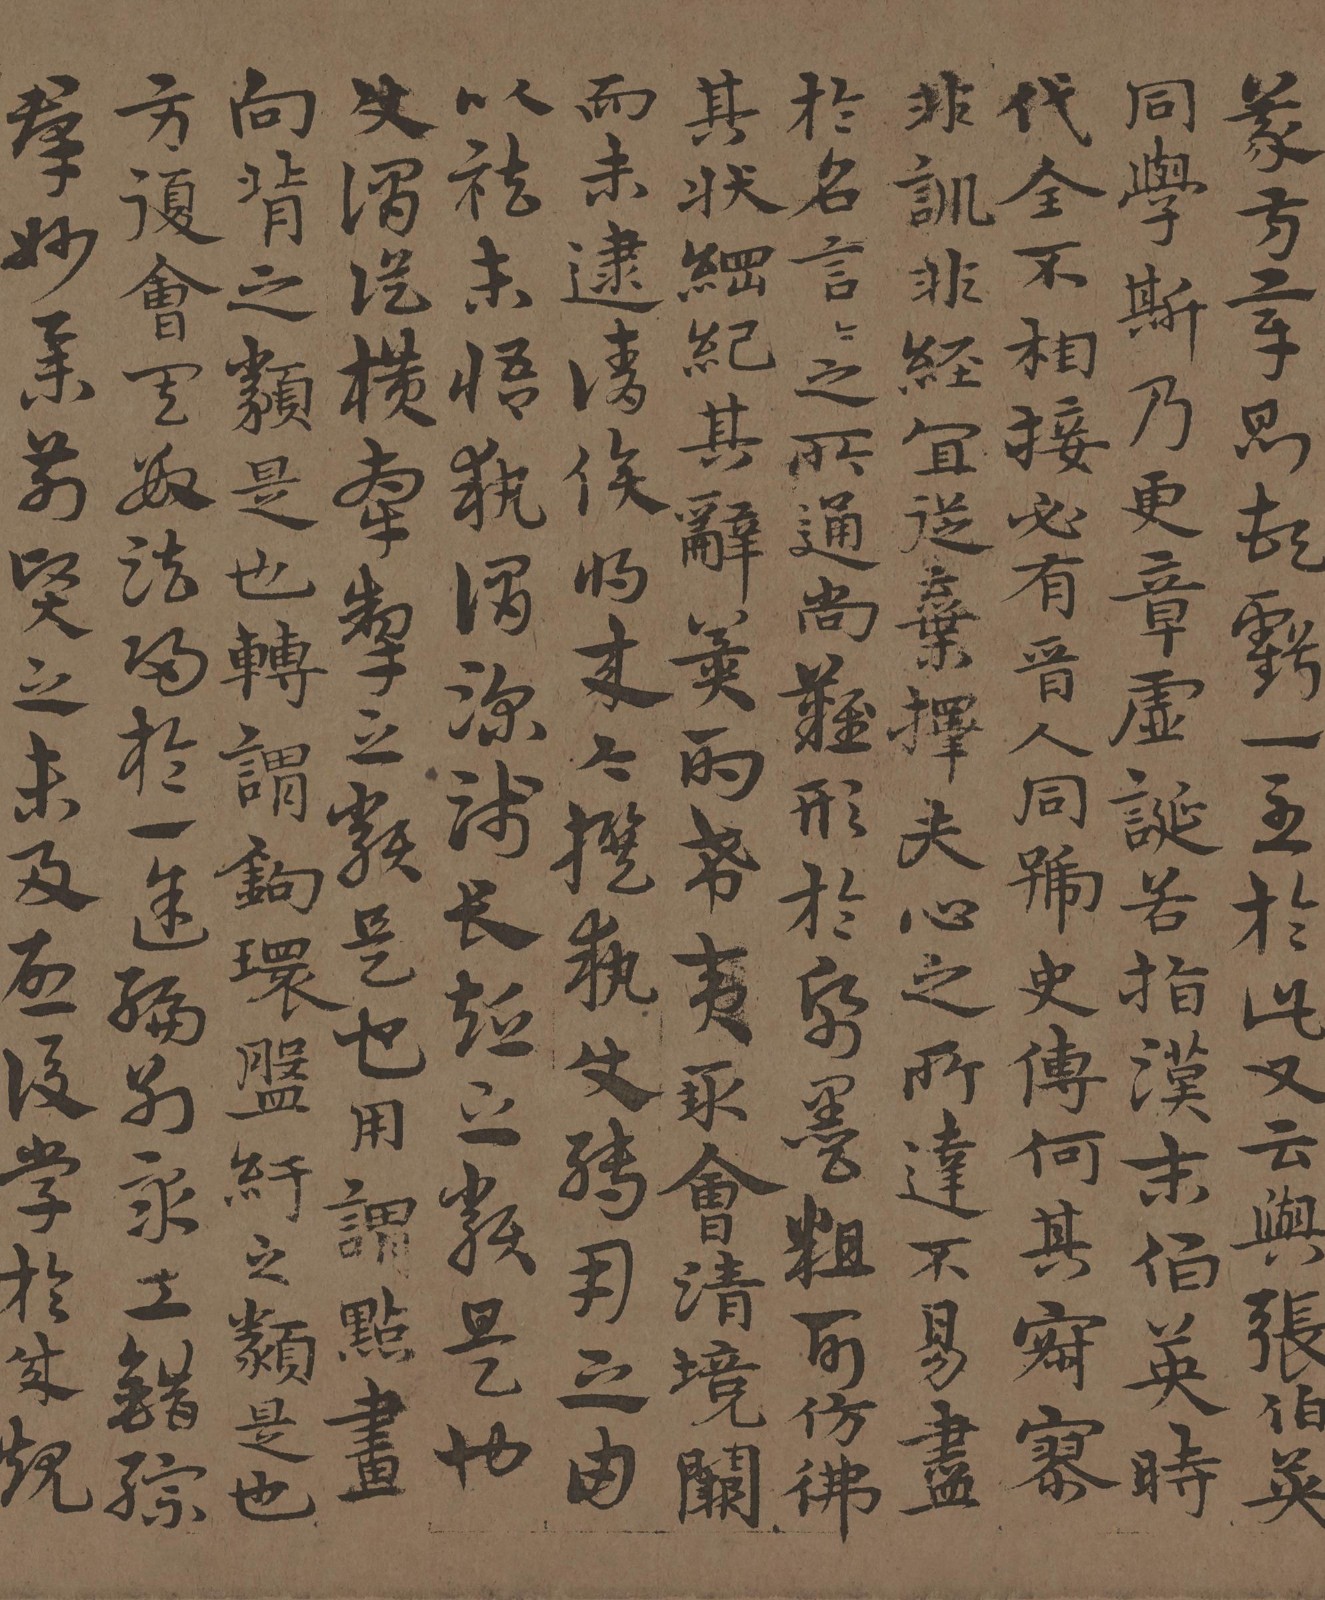 義方章則頓虧一至於此又云與張伯英
同學斯乃更章虛誕若指漢末伯英時
代全不相接必有晉人同號史傳何其寂寥
非訓非經宜從棄擇夫心之所達不易盡
於名言々之所通尚難形於紙墨粗可仿彿
其狀綱紀其辭冀酌希夷取會清境闕
而未逮請俟將來今撰執使轉用之由
以祛未悟執謂深淺長短之類是也
使謂從橫牽掣之類是也用謂點畫
向背之類是也轉謂鉤環盤紆之類是也
方復會其數法歸於一途編列衆工錯綜
羣妙舉前賢之未及啟後學於成規